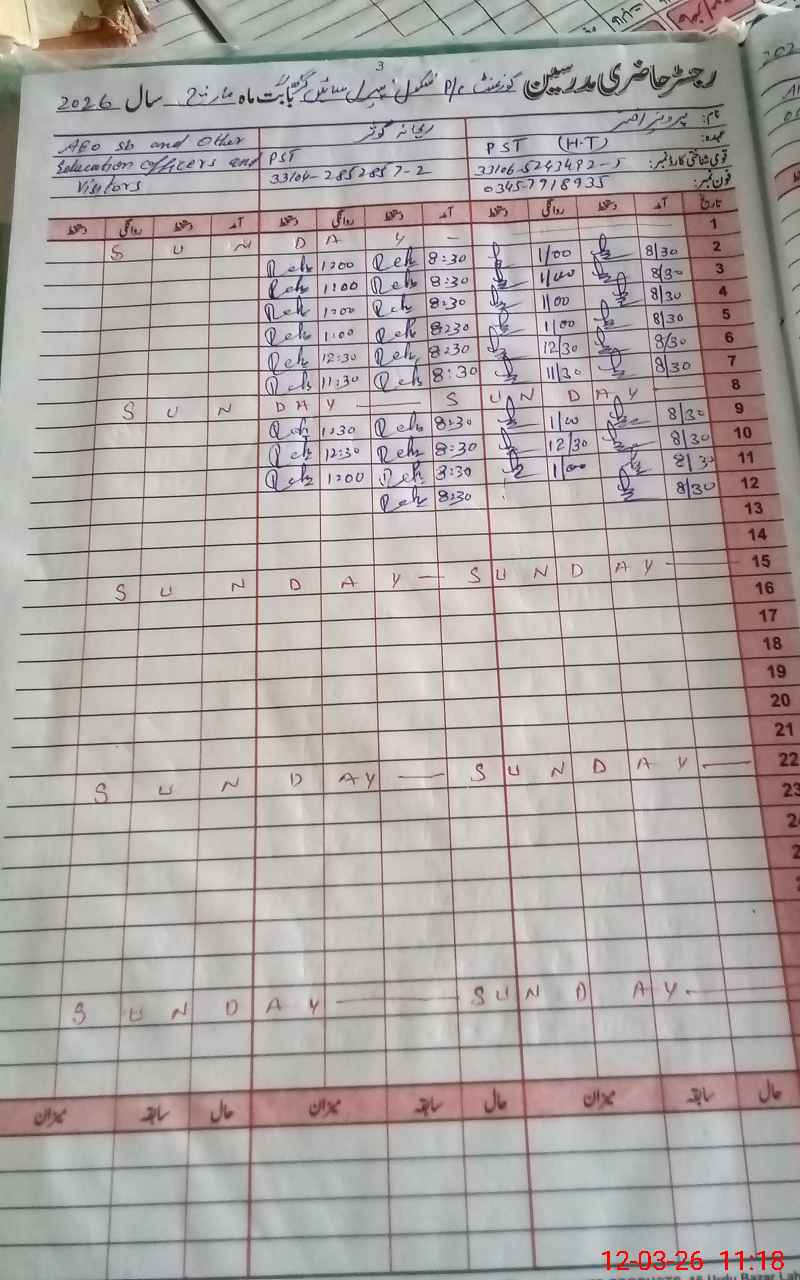 رجسٹر حاضری مدرسین گورنمنٹ P/c سکول بابت ماہ مارچ 3 سال 2026
نام: پرویز اختر ریحانہ کوثر AEO sb and other
عہدہ: PST (H-T) PST Education officers and
قومی شناختی کارڈ نمبر: 33106-5243492-5 33104-2852857-2 Visitors
فون نمبر: 03457918935
تاریخ آمد دستخط روانگی دستخط آمد دستخط روانگی دستخط آمد دستخط روانگی دستخط
1 S U N D A Y
2 8/30 1/00 8:30 Reh 1:00 Reh
3 8/30 1/00 8:30 Reh 1:00 Reh
4 8/30 1/00 8:30 Reh 1:00 Reh
5 8/30 1/00 8:30 Reh 1:00 Reh
6 8/30 12/30 8:30 Reh 12:30 Reh
7 8/30 11/30 8:30 Reh 11:30 Reh
8 S U N D A Y S U N D A Y
9 8/30 1/00 8:30 Reh 1:30 Reh
10 8/30 12/30 8:30 Reh 12:30 Reh
11 8/30 1/00 8:30 Reh 1:00 Reh
12 8/30 8:30 Reh
13
14
15 S U N D A Y S U N D A Y
16
17
18
19
20
21
22 S U N D A Y S U N D A Y
23
S U N D A Y S U N D A Y
حال سابقہ میزان حال سابقہ میزان حال سابقہ میزان
12-03-26 11.18